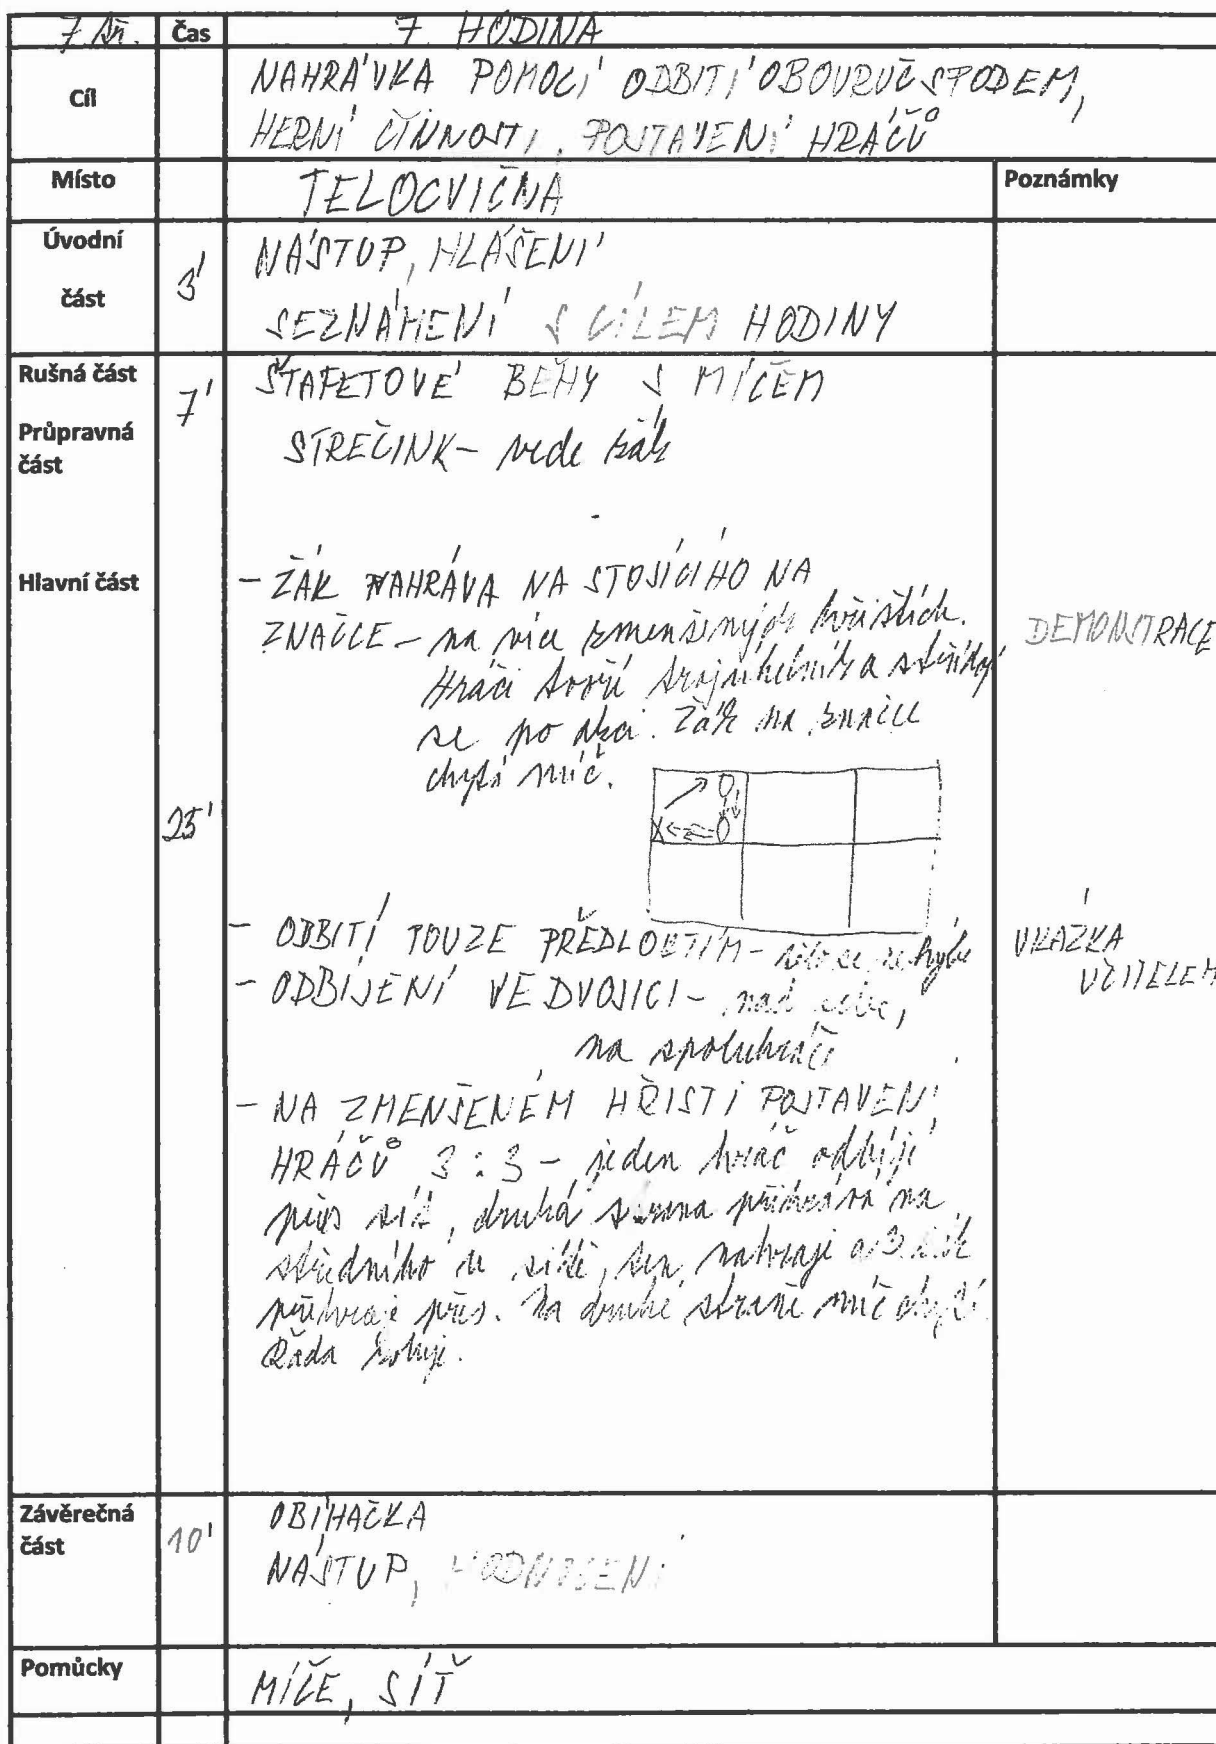 7. tř. Čas 7. HODINA
Cíl NAHRÁVKA POMOCÍ ODBITÍ OBOURUČ SPODEM,
HERNÍ ČINNOSTI, POSTAVENÍ HRÁČŮ
Místo TELOCVIČNA Poznámky
Úvodní
část 3' NÁSTUP, HLÁŠENÍ
SEZNÁMENÍ S CÍLEM HODINY
Rušná část 7' ŠTAFETOVÉ BĚHY S MÍČEM
Průpravná
část STREČINK - vede žák
Hlavní část 25' - ŽÁK NAHRÁVA NA STOJÍCÍHO NA
ZNAČCE - na více zmenšených hřištích. DEMONSTRACE
Hráči tvoří trojúhelník a střídají
se po akci. Žák na značce
chytá míč.
- ODBITÍ POUZE PŘEDLOKTÍM - UKÁZKA
UČITELEM
- ODBÍJENÍ VE DVOJICI - nad sebe,
na spoluhráče
- NA ZMENŠENÉM HŘISTI POSTAVENÍ
HRÁČŮ 3:3 - jeden hráč odbíjí
přes síť, druhá strana přihrává na
středního u sítě, ten nahraje a 3.
přehraje přes. Na druhé straně míč chytí.
Řada rotuje.
Závěrečná
část 10' OBÍHAČKA
NÁSTUP, HODNOCENÍ
Pomůcky MÍČE, SÍŤ